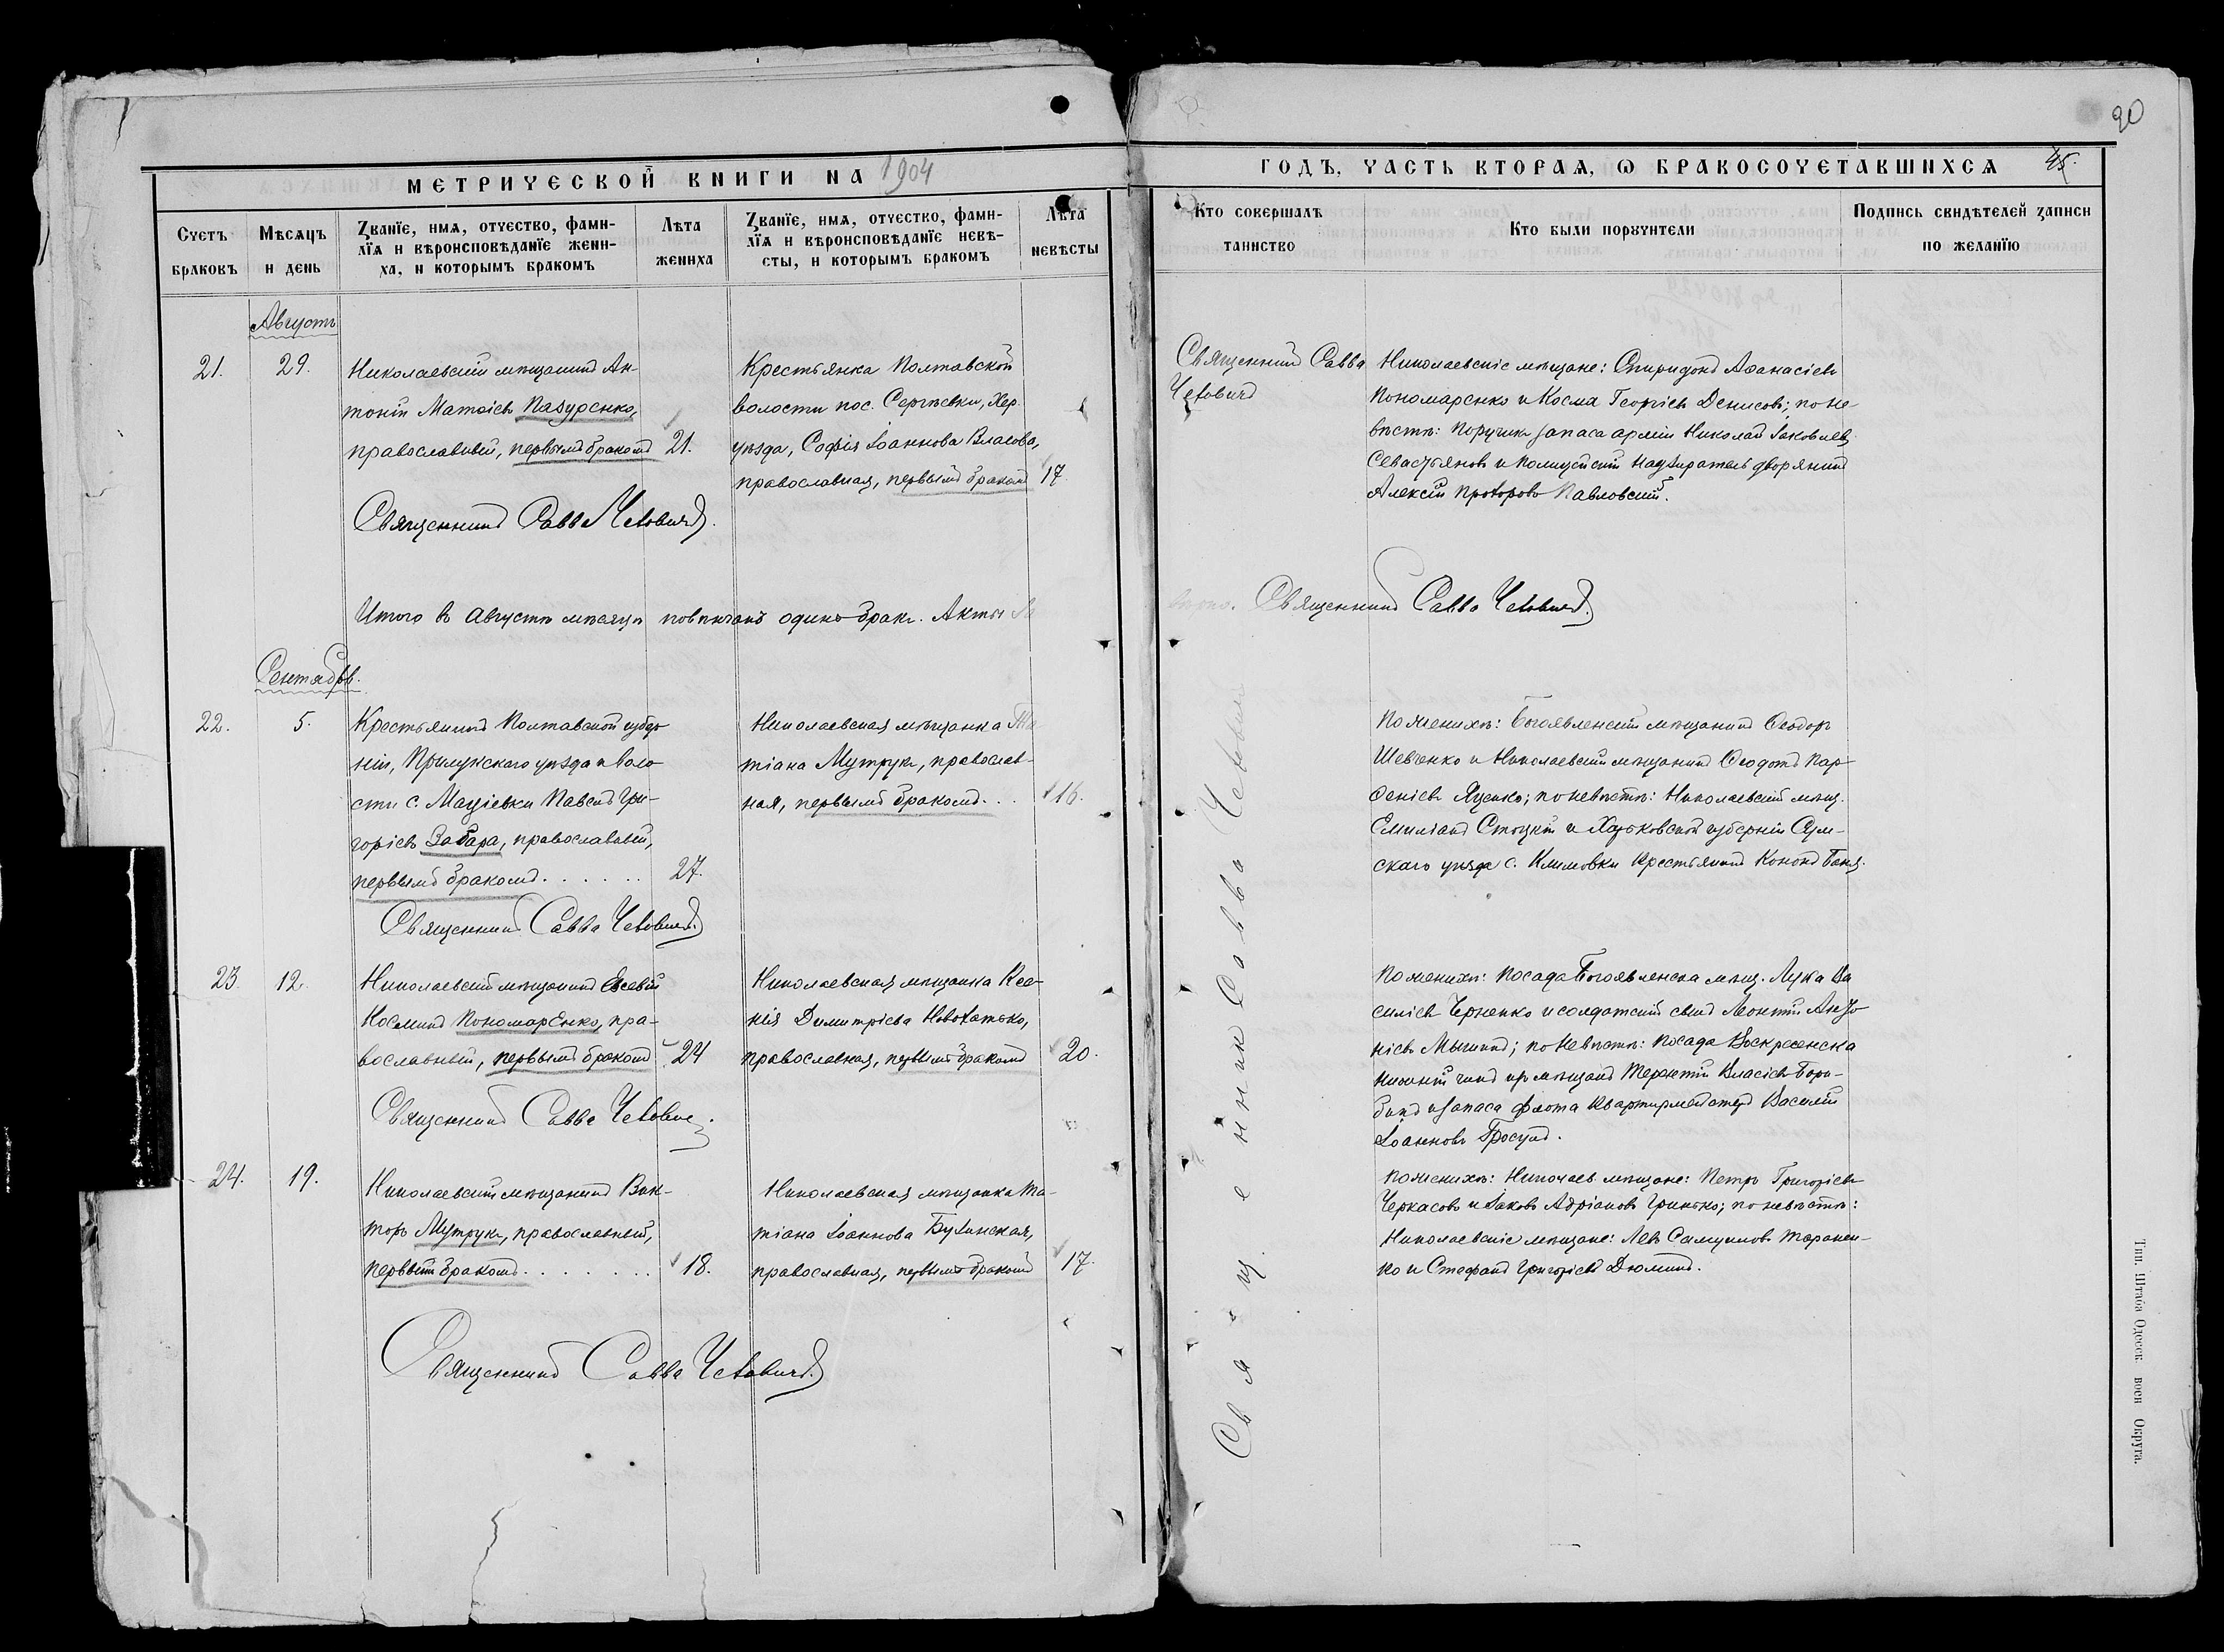 90
МЕТРИЧЕСКОЙ КНИГИ НА 1904
ГОДЪ, ЧАСТЬ ВТОРАЯ, Ѡ БРАКОСОЧЕТАВШИХСЯ 45.
Счетъ браковъ
Мѣсяцъ и день
Званїе, имя, отчество, фами-
лїя и вѣроисповѣданїе жени-
ха, и которымъ бракомъ
Лѣта жениха
Званїе, имя, отчество, фами-
лїя и вѣроисповѣданїе невѣ-
сты, и которымъ бракомъ
Лѣта невѣсты
Кто совершалъ таинство
Кто были поручители
Подпись свидѣтелей записи по желанїю
Августъ
21. 29.
Николаевскій мѣщанинъ Ан-
тоній Матѳіевъ Пазуренко,
православный, первымъ бракомъ 21.
Крестьянка Полтавской
волости пос. Сергѣевки, Хер.
уѣзда, Софія Іоаннова Власова,
православная, первымъ бракомъ 17
Священникъ Савва
Четовичъ
Николаевскіе мѣщане: Спиридонъ Аѳанасіевъ
Пономаренко и Косма Георгіевъ Денисовъ; по не-
вѣстѣ: поручикъ запаса арміи Николай Іаковлевъ
Севастьяновъ и полицейскій надзиратель дворянинъ
Алексій Павловскій.
Священникъ Савва Четовичъ.
Итого въ Августѣ мѣсяцѣ повѣнчанъ одинъ бракъ. Акты
вѣрно. Священникъ Савва Четовичъ.
Сентябрь.
22. 5.
Крестьянинъ Полтавской губер-
ніи, Прилукскаго уѣзда и воло-
сти с. Мацѣевки Павелъ Гри-
горіевъ Забара, православный,
первымъ бракомъ. . . . . . 27.
Николаевская мѣщанка Та-
тіана Мутрукъ, православ-
ная, первымъ бракомъ. . . 16.
По женихѣ: Богоявленскій мѣщанинъ Ѳеодоръ
Шевченко и Николаевскій мѣщанинъ Ѳеодотъ Пар-
ѳеніевъ Яценко; по невѣстѣ: Николаевскій мѣщ.
Емиліанъ Стоцкій и Харьковской губерніи Сум-
скаго уѣзда с. Климовки крестьянинъ Кононъ
Священникъ Савва Четовичъ.
23. 12.
Николаевскій мѣщанинъ Евсевій
Косминъ Пономаренко, пра-
вославный, первымъ бракомъ 24
Николаевская мѣщанка Ксе-
нія Димитріева Новохатько,
православная, первымъ бракомъ 20.
По женихѣ: посада Богоявленска мѣщ. Лука Ва
силіевъ Черненко и солдатскій сынъ Леонтій Анто
ніевъ; по невѣстѣ: посада Воскресенска
мѣщанъ Терентій Власіевъ
и запаса флота квартирмейстеръ Василій
Іоанновъ
Священникъ Савва Четович.
24. 19.
Николаевскій мѣщанинъ Вик-
торъ Мутрукъ, православный,
первымъ бракомъ. . . . . . . 18.
Николаевская мѣщанка Та-
тіана Іоаннова Бузинская,
православная, первымъ бракомъ 17.
По женихѣ: Николаев. мѣщане: Петръ Григоріевъ
Черкасовъ и Іаковъ Адріановъ Гринько; по невѣстѣ:
Николаевскіе мѣщане: Левъ Самуиловъ Таранен-
ко и Стефанъ Григоріевъ Дюминъ.
Священникъ Савва Четовичъ.
Священник Савва Четович
Тип. Штаба Одесск воен Округа.